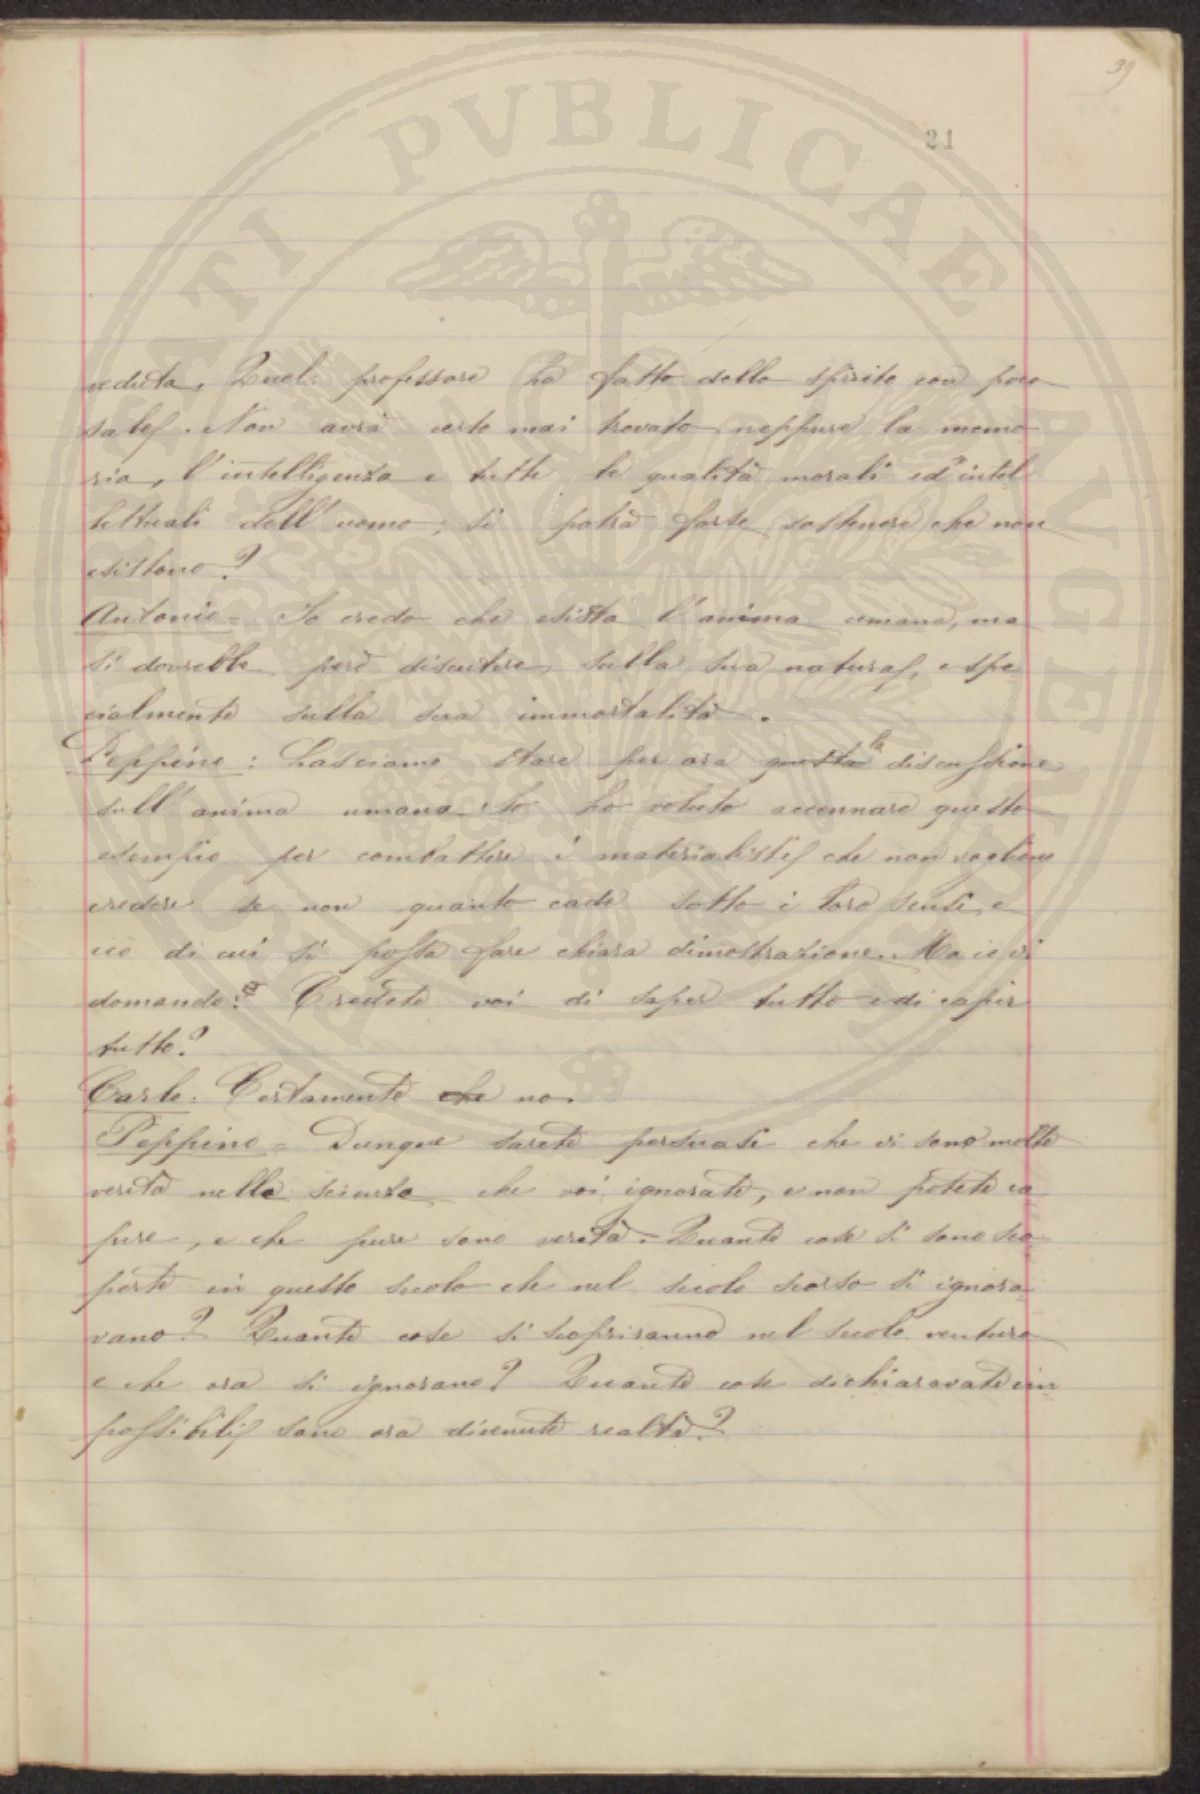 39
21
veduta. Quel professore ha fatto dello spirito con poco
sale. Non avrà certo mai trovato neppure la memo
ria, l'intelligenza e tutte le qualità morali ed intel
lettuali dell'uomo; si potrà forse sostenere che non
esistono?
Antonio = Io credo che esista l'anima umana, ma
si dovrebbe però discutere sulla sua natura, e spe
cialmente sulla sua immortalità.
Peppino: Lasciamo stare per ora questa la discussione
sull'anima umana. Io ho voluto accennare questo
esempio per combattere i materialisti che non vogliono
credere se non quanto cade sotto i loro sensi, e
ciò di cui si possa fare chiara dimostrazione. Ma io vi
domando: Credete voi di saper tutto e di capir
tutto?
Carlo: Certamente che no.
Peppino = Dunque sarete persuasi che vi sono molte
verità nella scienza che voi ignorate, e non potete ca
pire, e che pure sono verità = Quante cose si sono sco
perte in questo secolo che nel secolo scorso si ignora
vano? Quante cose si scopriranno nel secolo venturo
e che ora si ignorano? Quante cose dichiaravate im
possibili sono ora divenute realtà?
PVBLICAE